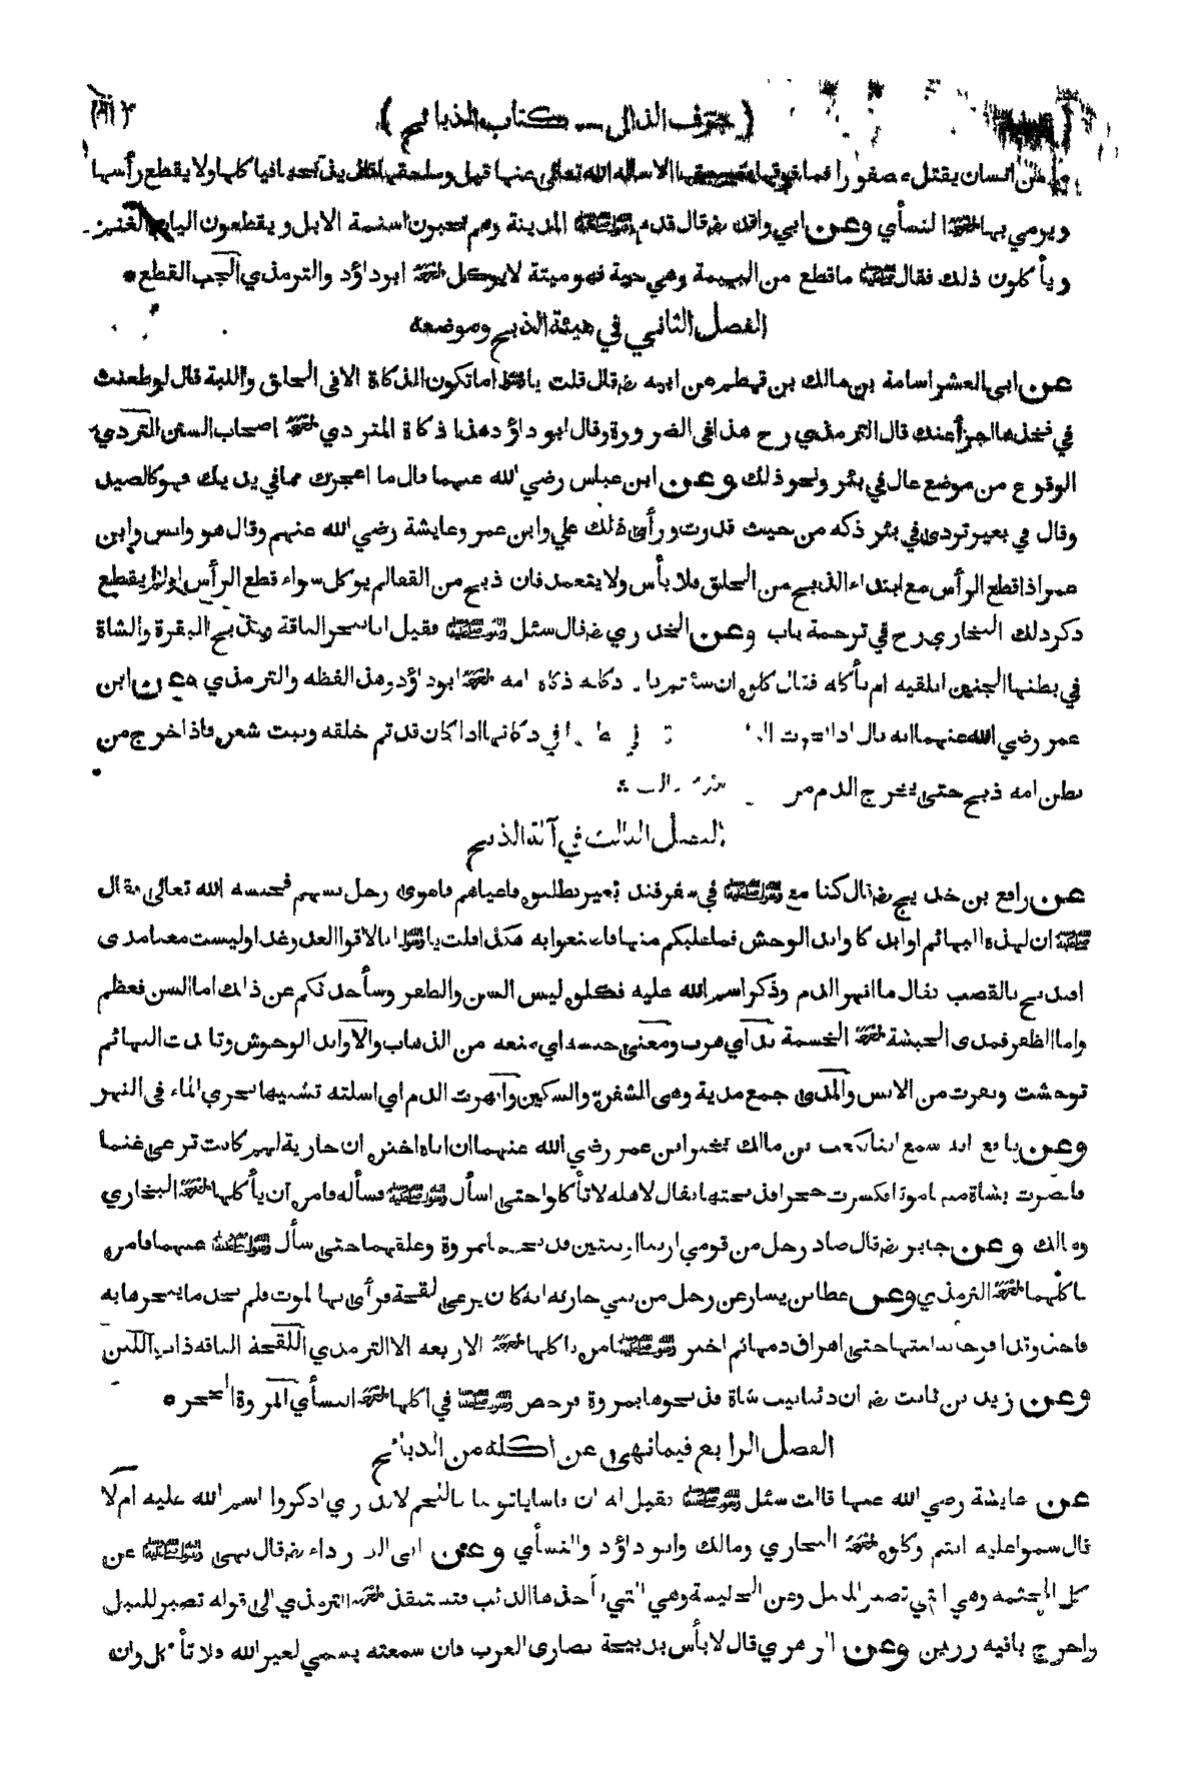 ( حرف الذال — كتاب الذبائح )
ما من انسان يقتل عصفورا فما فوقها بغير حقها الا سأله الله تعالى عنها قيل وما حقها قال يذبحها فيأكلها ولا يقطع رأسها
ويرمي بها النسأي وعن ابي واقد رض قال قدم رسول الله صلى الله عليه وسلم المدينة وهم يجبون اسنمة الابل ويقطعون اليات الغنم
ويأكلون ذلك فقال صلى الله عليه وسلم ما قطع من البهيمة وهي حية فهو ميتة لا يوكل اخرجه ابو داؤد والترمذي الجب القطع
الفصل الثاني في هيئة الذبح وموضعه
عن ابي العشر اسامة بن مالك بن قهطم عن ابيه رض قال قلت يا رسول الله اما تكون الذكاة الا في الحلق واللبة قال لو طعنت
في فخذها اجزأ عنك قال الترمذي رح هذا في الضرورة وقال ابو داؤد هذا ذكاة المتردي اخرجه اصحاب السنن التردي
الوقوع من موضع عال في بئر ونحو ذلك وعن ابن عباس رضي الله عنهما قال ما اعجزك مما في يديك فهو كالصيد
وقال في بعير تردى في بئر ذكه من حيث قدرت ورأى ذلك علي وابن عمر وعايشة رضي الله عنهم وقال هو وانس وابن
عمر اذا قطع الرأس مع ابتداء الذبح من الحلق فلا بأس ولا يتعمد فان ذبح من القفا لم يوكل سواء قطع الرأس او لم يقطع
ذكر ذلك البخاري رح في ترجمة باب وعن الخدري رض قال سئل رسول الله صلى الله عليه وسلم فقيل انا ننحر الناقة ونذبح البقرة والشاة
في بطنها الجنين انلقيه ام نأكله فقال كلوه ان شئتم فان ذكاته ذكاة امه اخرجه ابو داؤد وهذا لفظه والترمذي وعن ابن
عمر رضي الله عنهما انه قال اذا نحرت في ذكاتها اذا كان قد تم خلقه ونبت شعره فاذا خرج من
بطن امه ذبح حتى يخرج الدم من
الفصل الثالث في آلة الذبح
عن رافع بن خديج رض قال كنا مع رسول الله صلى الله عليه وسلم في سفر فند بعير فطلبوه فاعياهم فاهوى رجل بسهم فحبسه الله تعالى فقال
صلى الله عليه وسلم ان لهذه البهائم اوابد كاوابد الوحش فما غلبكم منها فاصنعوا به هكذا قلت يا رسول الله انا لاقوا العدو غدا وليست معنا مدى
افنذبح بالقصب فقال ما انهر الدم وذكر اسم الله عليه فكلوه ليس السن والظفر وسأحدثكم عن ذلك اما السن فعظم
واما الظفر فمدى الحبشة اخرجه الخمسة ند اي هرب ومعنى حبسه اي منعه من الذهاب والاوابد الوحوش وتابدت البهائم
توحشت ونفرت من الانس والمدى جمع مدية وهي الشفرة والسكين وانهرت الدم اي اسلته تشبيها بجري الماء في النهر
وعن نافع انه سمع ابنا لكعب بن مالك يخبر ابن عمر رضي الله عنهما ان اباه اخبره ان جارية لهم كانت ترعى غنما
فابصرت بشاة منها موتا فكسرت حجرا فذبحتها فقال لاهله لا تأكلوا حتى اسأل رسول الله صلى الله عليه وسلم فسأله فامره ان يأكلها اخرجه البخاري
ومالك وعن جابر رض قال صاد رجل من قومي ارنبا او ثنتين فذبحهما بمروة وعلقهما حتى سأل رسول الله صلى الله عليه وسلم عنهما فامره
باكلهما اخرجه الترمذي وعن عطا بن يسار عن رجل من بني حارثة انه كان يرعى لقحة فرأى بها الموت فلم يجد ما ينحرها به
فاخذ وتدا فوجأ به لبتها حتى اهراق دمها ثم اخبر رسول الله صلى الله عليه وسلم فامره باكلها اخرجه الاربعة الا الترمذي اللقحة الناقة ذات اللبن
وعن زيد بن ثابت رض ان ذئبا نيب شاة فذبحوها بمروة فرخص رسول الله صلى الله عليه وسلم في اكلها اخرجه النسأي المروة الحجر
الفصل الرابع فيما نهى عن اكله من الذبائح
عن عايشة رضي الله عنها قالت سئل رسول الله صلى الله عليه وسلم فقيل له ان ناسا ياتوننا باللحم لا ندري اذكروا اسم الله عليه ام لا
قال سموا عليه انتم وكلوه اخرجه البخاري ومالك وابو داؤد والنسأي وعن ابي الدرداء رض قال نهى رسول الله صلى الله عليه وسلم عن
اكل المجثمة وهي التي تصبر للنبل وعن الخليسة وهي التي أخذها الذئب فتستنقذ اخرجه الترمذي الى قوله تصبر للنبل
واخرج باقيه رزين وعن الزهري قال لا بأس بذبيحة نصارى العرب فان سمعته يسمي لغير الله فلا تأكل وان